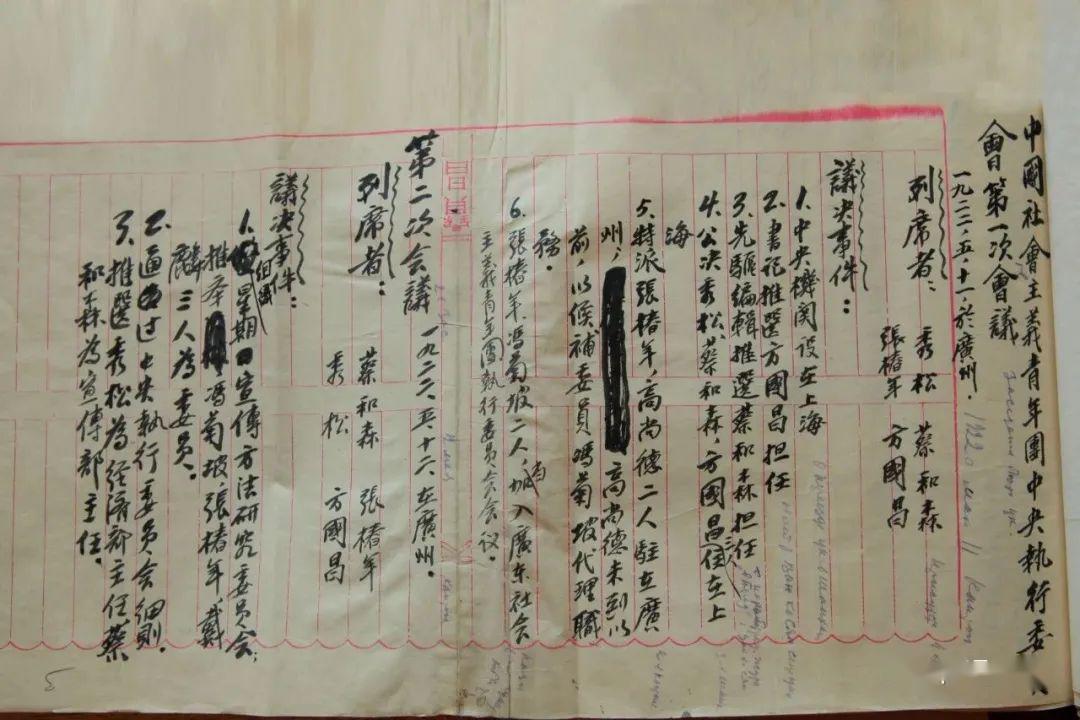 中國社會主義青年團中央執行委
會第一次會議
一九二二,五,十一,於廣州.
列席者：
秀松 蔡和森
張椿年 方國昌
議決事件：
1.中央機関設在上海
2.書記推選方國昌担任
3.先驅編輯推選蔡和森担任
4.公決秀松、蔡和森，方國昌三人住在上
海
5.特派張椿年，高尚德二人駐在廣
州， 高尚德未到以
前，以候補委員馮菊坡代理職
務。
6.張椿年馮菊坡二人，加入廣东社会
主義青年團執行委員会会议。
第二次会議 一九二二 五 十二 在廣州.
列席者：
蔡和森 張椿年
秀松 方國昌
議决事件：
1.組織星期日宣傳方法研究委員会；
推 馮菊坡、張椿年 戴
三人為委員.
2.通过中央執行委員会細則.
3.推選秀松為经濟部主任 蔡
和森為宣傳部主任.
5